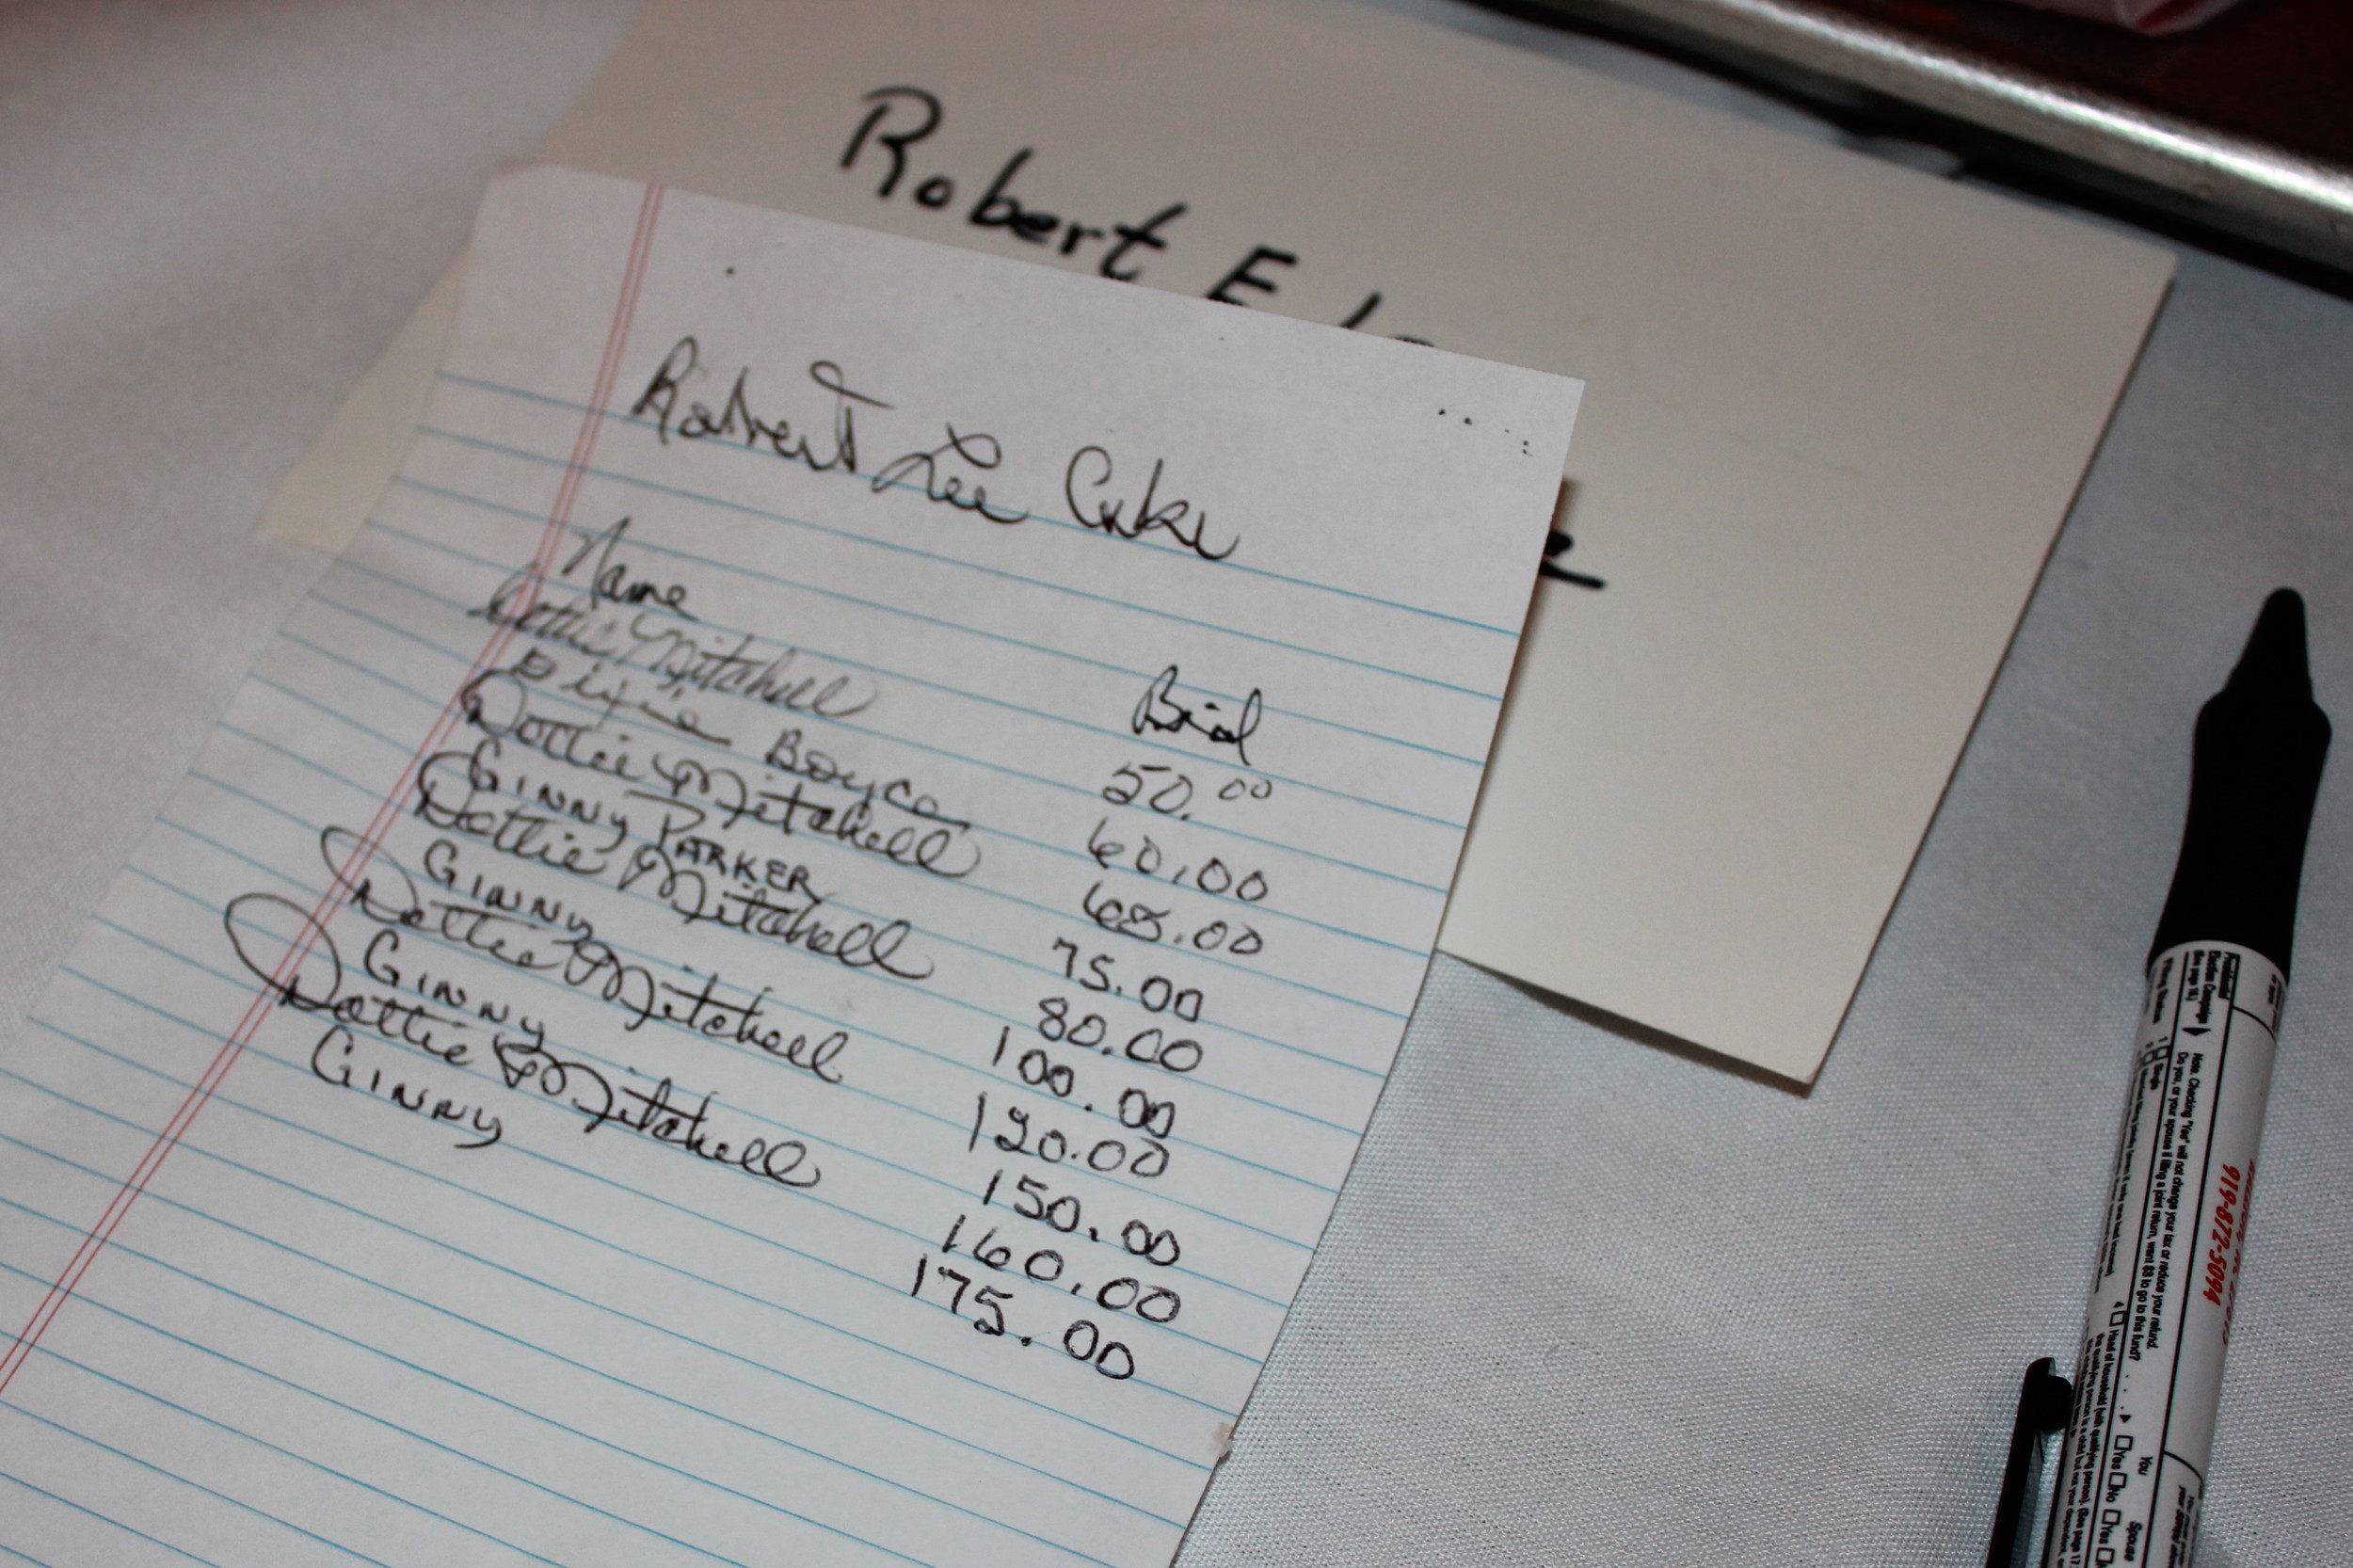 Robert E. Lee
Robert Lee Cake
Name Bid
Dottie Mitchell 50.00
Dixie Boyce 60.00
Dottie Mitchell 68.00
GINNY PARKER 75.00
Dottie Mitchell 80.00
GINNY 100.00
Dottie Mitchell 120.00
GINNY 150.00
Dottie Mitchell 160.00
GINNY 175.00
919-872-5094
Presidential
Election Campaign
Note. Checking "Yes" will not change your tax or reduce your refund.
Do you, or your spouse if filing a joint return, want $3 to go to this fund?
You
Spouse
Yes No Yes
Filing Status
Single